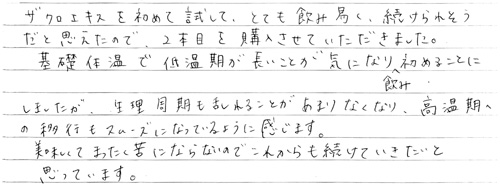 ザクロエキスを初めて試して、とても飲み易く、続けられそう
だと思えたので、2本目を購入させていただきました。
基礎体温で低温期が長いことが気になり飲み初めることに
しましたが、生理周期も乱れることがあまりなくなり、高温期へ
の移行もスムーズになっているように感じます。
美味しくてまったく苦にならないのでこれからも続けていきたいと
思っています。